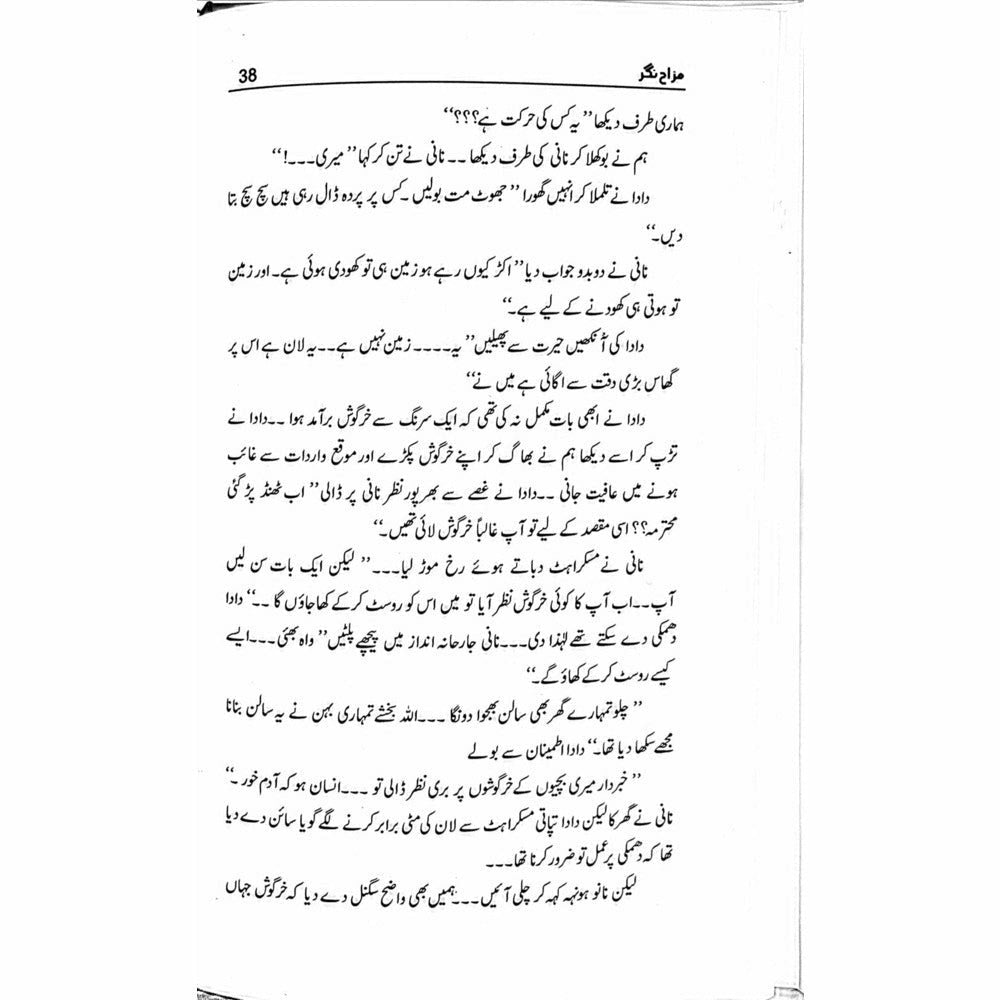 مزاح نگر
38
ہماری طرف دیکھا’’ یہ کس کی حرکت ہے؟؟؟‘‘
ہم نے بوکھلا کر نانی کی طرف دیکھا ۔۔ نانی نے تن کر کہا’’ میری ۔۔۔!‘‘
دادا نے تلملا کر انہیں گھورا ’’ جھوٹ مت بولیں ۔کس پر پردہ ڈال رہی ہیں سچ سچ بتا
دیں۔‘‘
نانی نے دوبدو جواب دیا’’ اکڑ کیوں رہے ہو زمین ہی تو کھودی ہوئی ہے۔ اور زمین
تو ہوتی ہی کھودنے کے لیے ہے۔‘‘
دادا کی آنکھیں حیرت سے پھیلیں’’ یہ۔۔۔۔ زمین نہیں ہے۔۔یہ لان ہے اس پر
گھاس بڑی دقت سے اگائی ہے میں نے‘‘
دادا نے ابھی بات مکمل نہ کی تھی کہ ایک سرنگ سے خرگوش برآمد ہوا ۔۔دادا نے
تڑپ کر اسے دیکھا ہم نے بھاگ کر اپنے خرگوش پکڑے اور موقع واردات سے غائب
ہونے میں عافیت جانی ۔۔دادا نے غصے سے بھرپور نظر نانی پر ڈالی’’ اب ٹھنڈ پڑ گئی
محترمہ؟؟ اسی مقصد کے لیے تو آپ غالباً خرگوش لائی تھیں۔‘‘
نانی نے مسکراہٹ دباتے ہوئے رخ موڑ لیا۔۔۔’’ لیکن ایک بات سن لیں
آپ۔۔اب آپ کا کوئی خرگوش نظر آیا تو میں اس کو روسٹ کرکے کھا جاؤں گا ۔۔‘‘ دادا
دھمکی دے سکتے تھے لہٰذا دی۔۔۔نانی جارحانہ انداز میں پیچھے پلٹیں’’ واہ بھئی۔۔۔ایسے
کیسے روسٹ کرکے کھاؤ گے۔‘‘
’’ چلو تمہارے گھر بھی سالن بھجوا دونگا ۔۔۔اللہ بخشے تمہاری بہن نے یہ سالن بنانا
مجھے سکھا دیا تھا۔‘‘ دادا اطمینان سے بولے
’’ خبردار میری بچیوں کے خرگوشوں پر بری نظر ڈالی تو ۔۔۔انسان ہو کہ آدم خور ۔‘‘
نانی نے گھرکا لیکن دادا تپاتی مسکراہٹ سے لان کی مٹی برابر کرنے لگے گویا سائن دے دیا
تھا کہ دھمکی پر عمل تو ضرور کرنا تھا۔۔۔
لیکن نانو ہونہہ کہہ کر چلی آئیں ۔۔۔ہمیں بھی واضح سگنل دے دیا کہ خرگوش جہاں